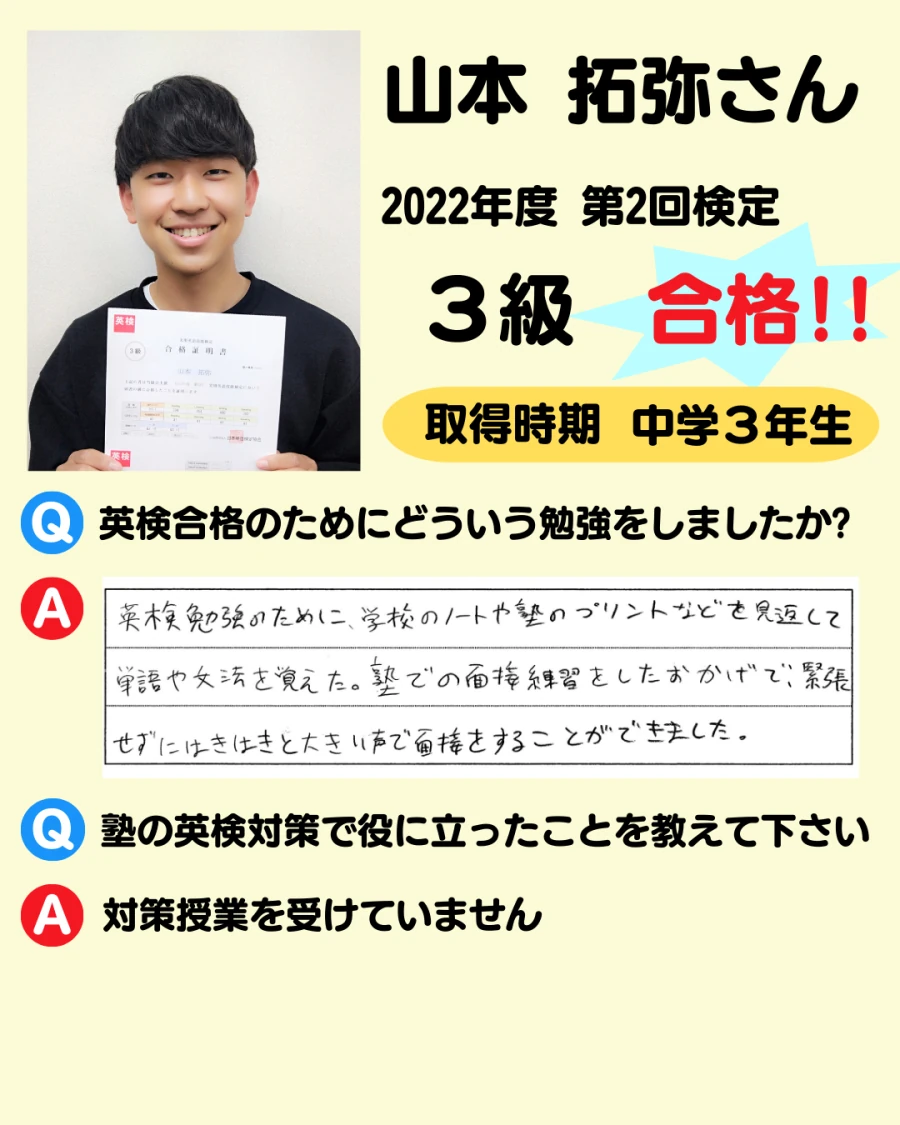 山本 拓弥さん
2022年度 第2回検定
3級 合格!!
取得時期 中学3年生
英検
3級
合格証明書
英検
Q 英検合格のためにどういう勉強をしましたか?
A 英検勉強のために、学校のノートや塾のプリントなどを見返して
単語や文法を覚えた。塾での面接練習をしたおかげで、緊張
せずにはきはきと大きい声で面接をすることができました。
Q 塾の英検対策で役に立ったことを教えて下さい
A 対策授業を受けていません